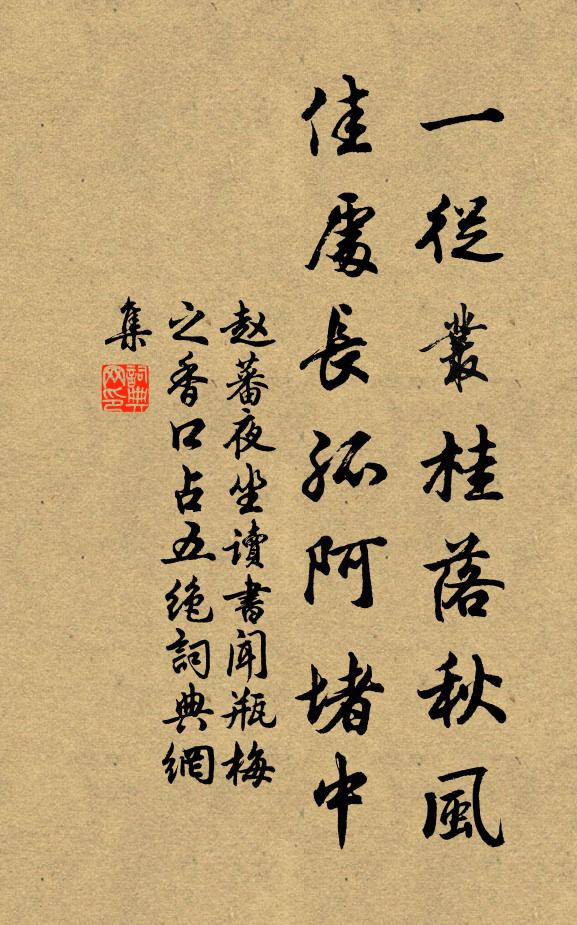 一從叢桂落秋風
佳處長孤阿堵中
趙蕃夜坐讀書聞瓶梅
之香口占五絶詞典網
集
詞典
網印